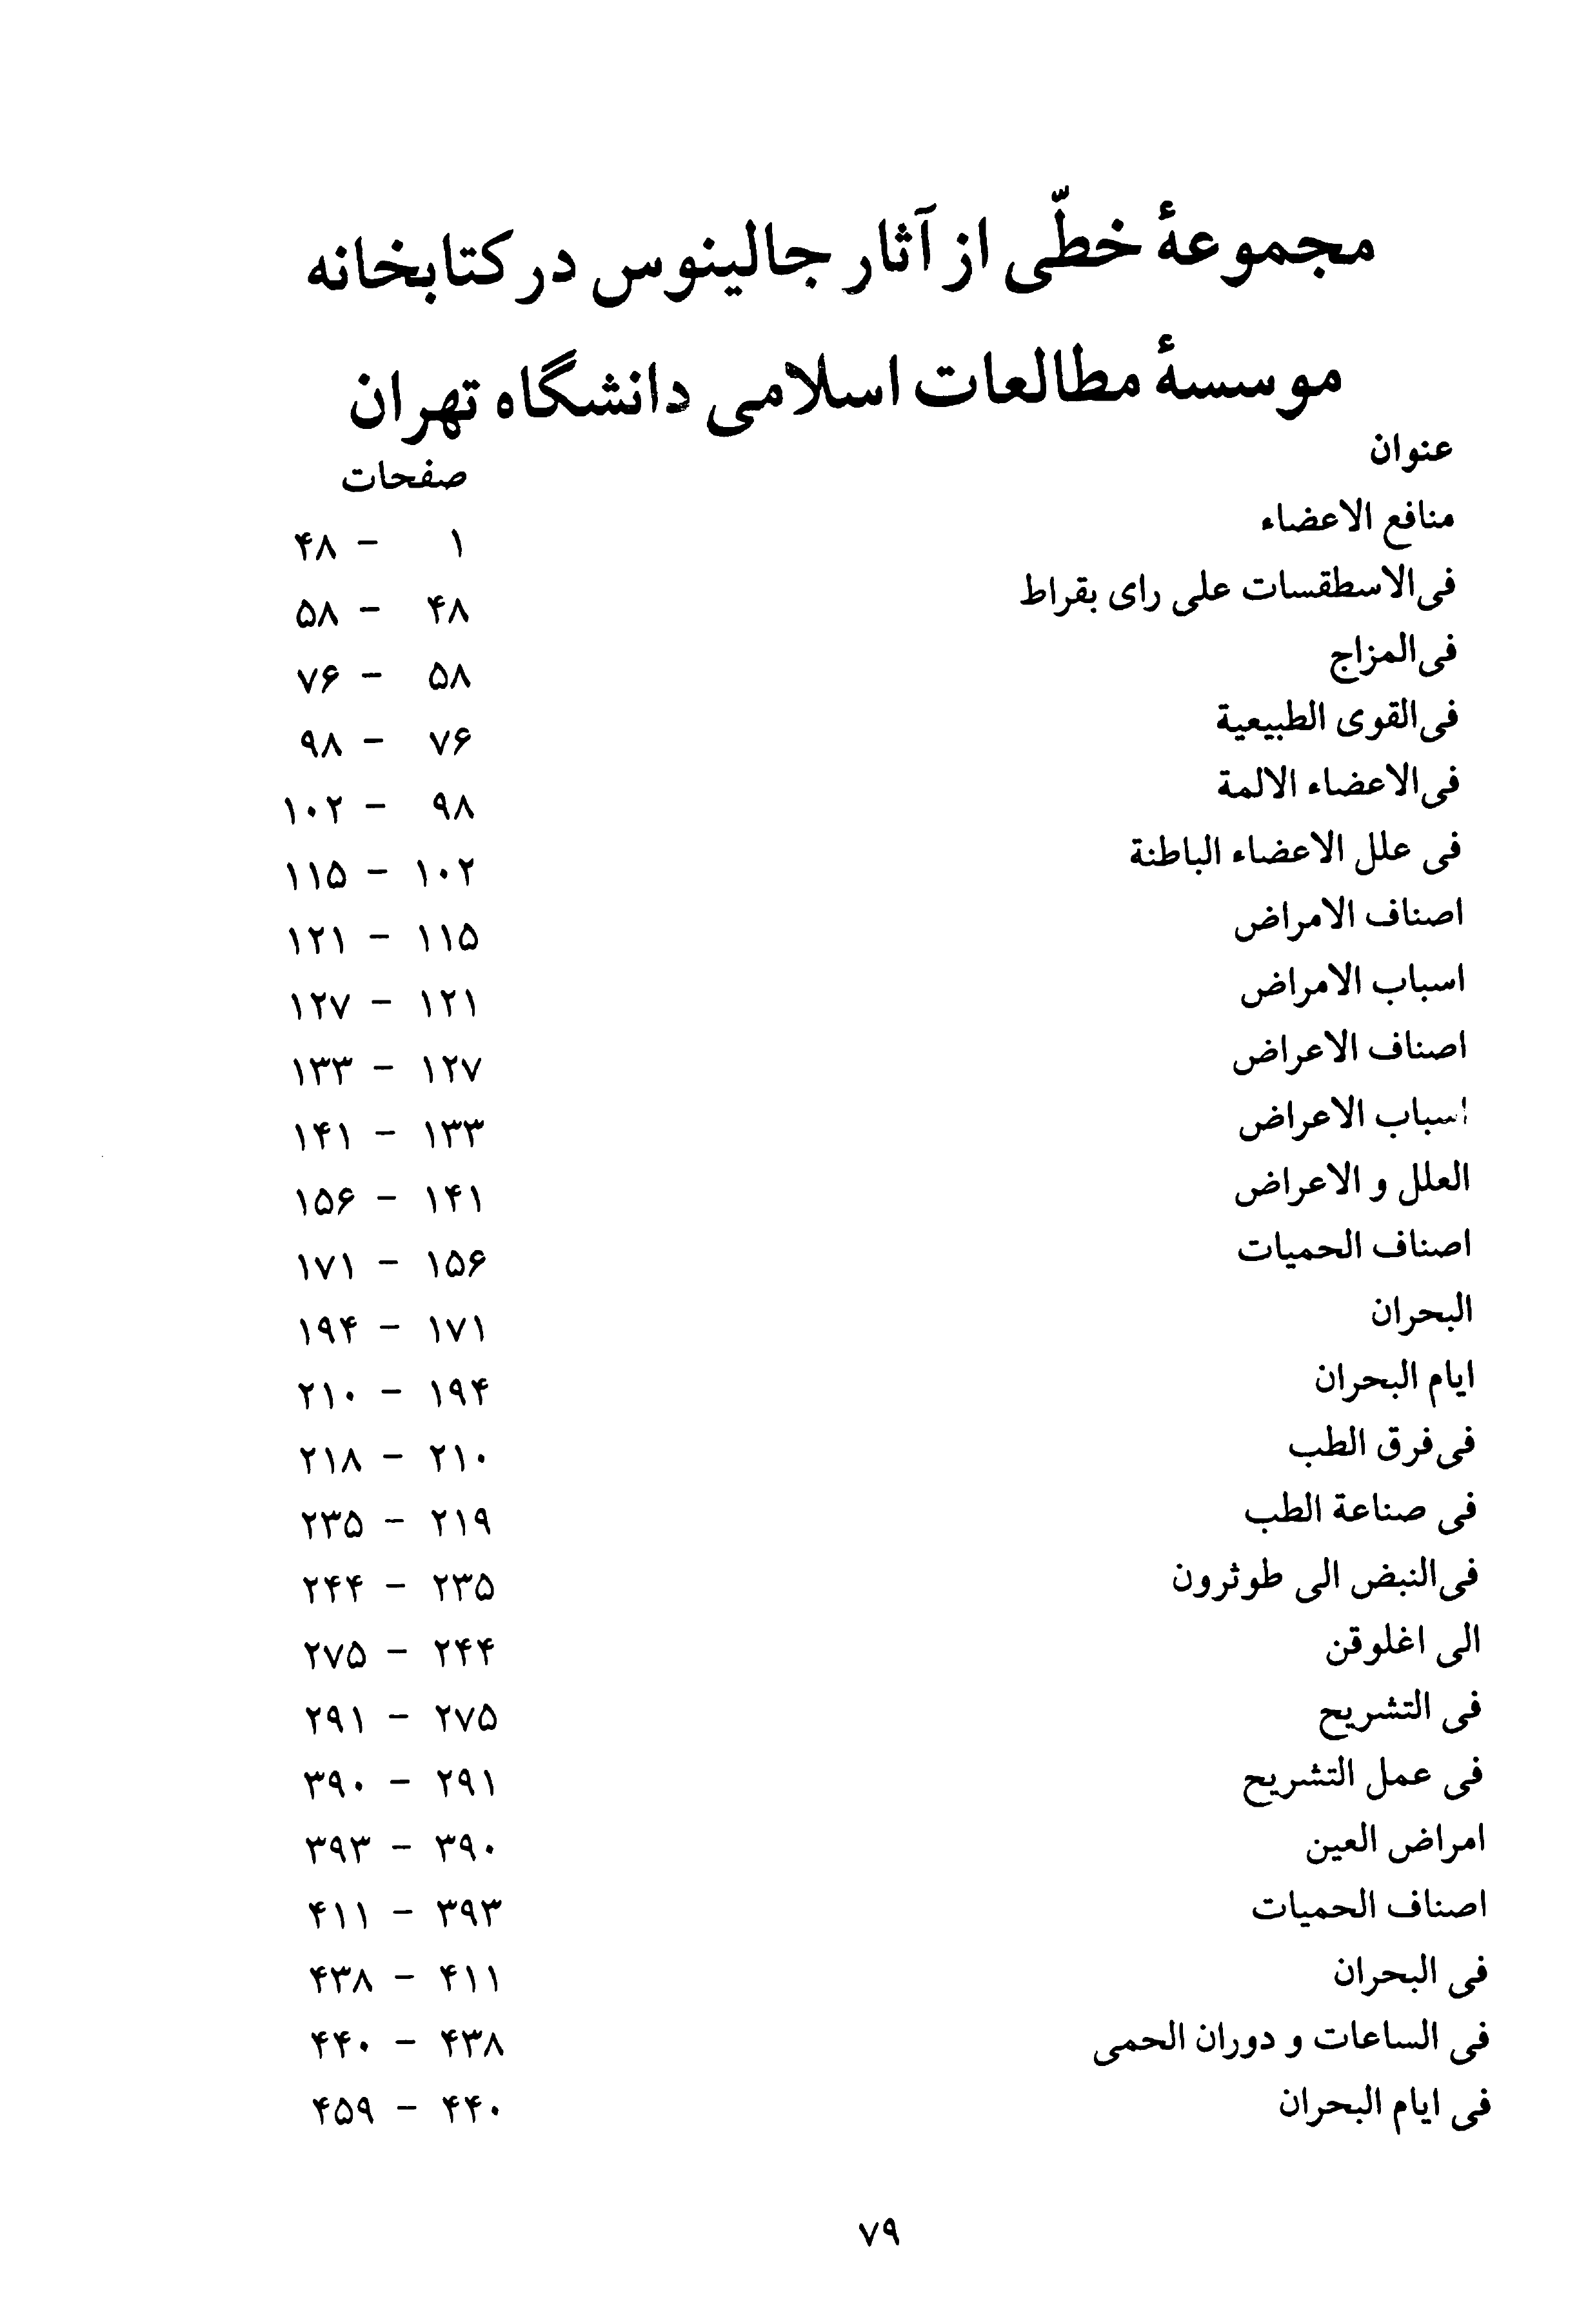 مجموعهٔ خطّی از آثار جالینوس در کتابخانه
موسسهٔ مطالعات اسلامی دانشگاه تهران
عنوان صفحات
منافع الاعضاء ۱ - ۴۸
فی‌الاسطقسات علی رای بقراط ۴۸ - ۵۸
فی‌المزاج ۵۸ - ۷۶
فی‌القوی الطبیعیة ۷۶ - ۹۸
فی‌الاعضاء الالمة ۹۸ - ۱۰۲
فی علل الاعضاء الباطنة ۱۰۲ - ۱۱۵
اصناف الامراض ۱۱۵ - ۱۲۱
اسباب الامراض ۱۲۱ - ۱۲۷
اصناف الاعراض ۱۲۷ - ۱۳۳
اسباب الاعراض ۱۳۳ - ۱۴۱
العلل و الاعراض ۱۴۱ - ۱۵۶
اصناف الحمیات ۱۵۶ - ۱۷۱
البحران ۱۷۱ - ۱۹۴
ایام البحران ۱۹۴ - ۲۱۰
فی‌فرق الطب ۲۱۰ - ۲۱۸
فی صناعة الطب ۲۱۹ - ۲۳۵
فی‌النبض الی طوثرون ۲۳۵ - ۲۴۴
الی اغلوقن ۲۴۴ - ۲۷۵
فی التشریح ۲۷۵ - ۲۹۱
فی عمل التشریح ۲۹۱ - ۳۹۰
امراض العین ۳۹۰ - ۳۹۳
اصناف الحمیات ۳۹۳ - ۴۱۱
فی البحران ۴۱۱ - ۴۳۸
فی الساعات و دوران الحمی ۴۳۸ - ۴۴۰
فی ایام البحران ۴۴۰ - ۴۵۹
۷۹